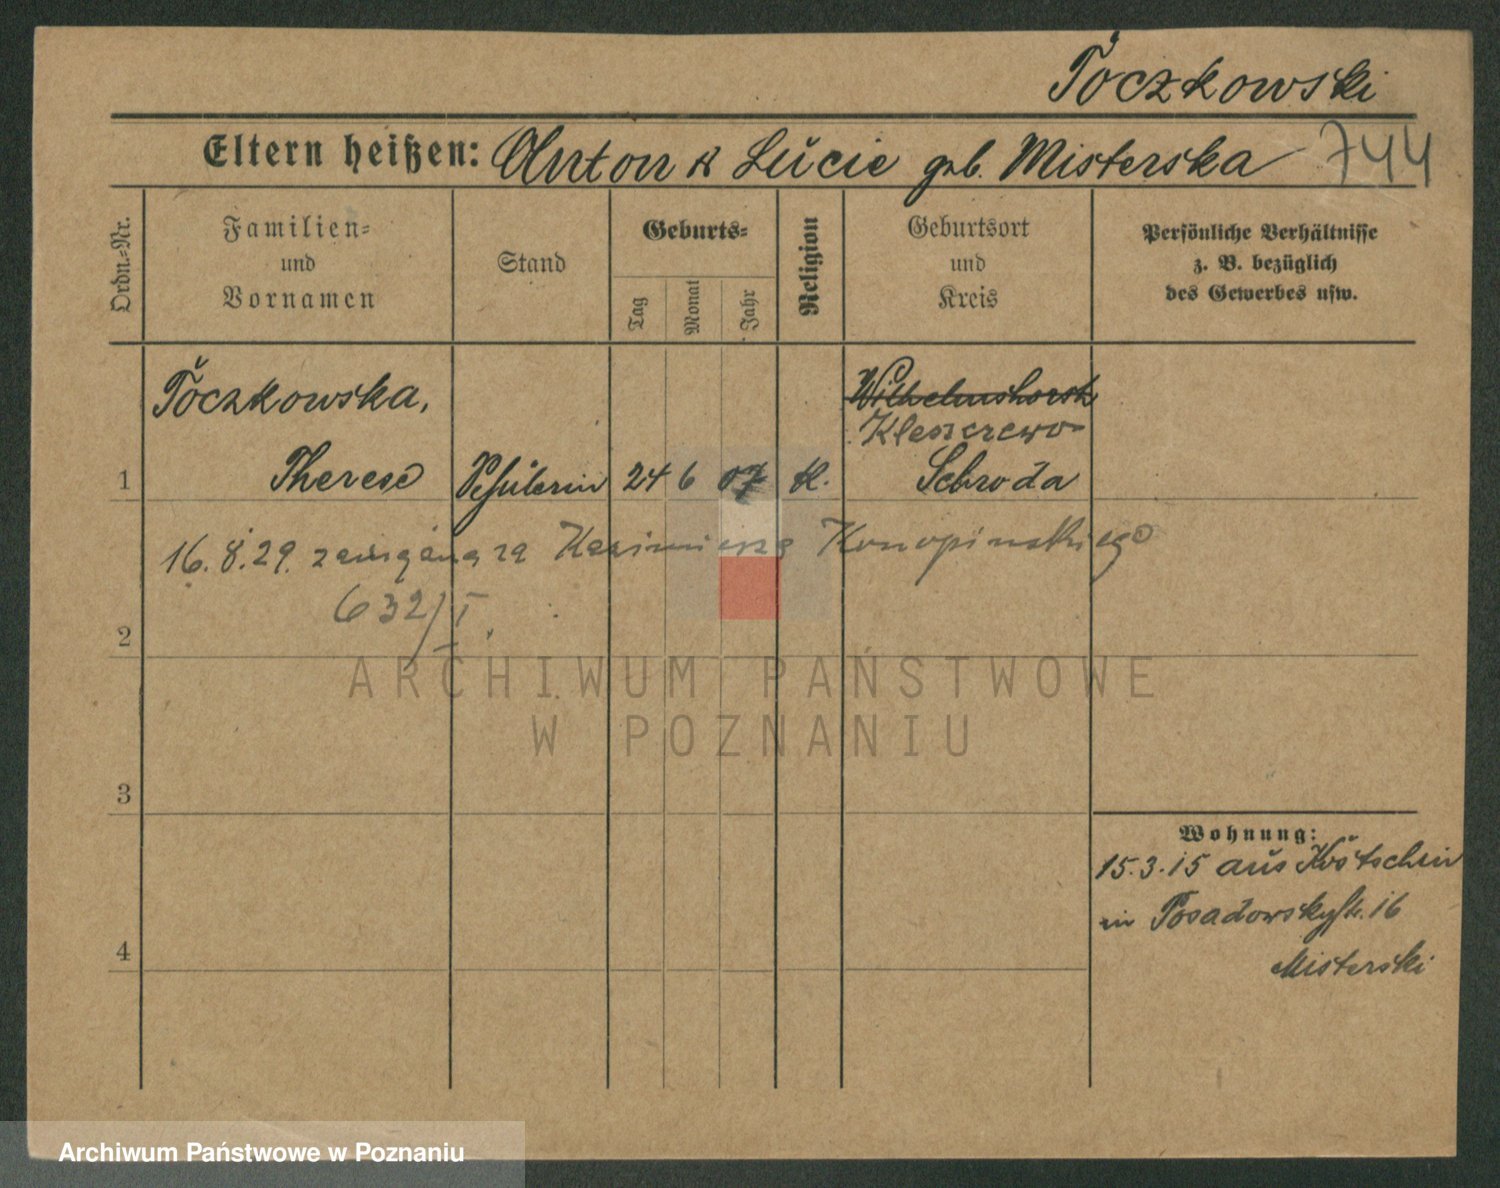 Toczkowski
Eltern heißen: Anton & Lucie geb. Misterska 744
Ordn.-Nr.
Familien-
und
Vornamen
Stand
Geburts-
Tag
Monat
Jahr
Religion
Geburtsort
und
Kreis
Persönliche Verhältnisse
z. B. bezüglich
des Gewerbes usw.
Toczkowska,
Wilhelmshorst
Kleszczewo
1 Therese Schülerin 24 6 07 k. Schroda
16.8.29. za Kazimierza Konopinskiego
632/I.
2
3
4
Wohnung:
15.3.15 aus Kostschin
in Posadowskystr. 16
Misterski
ARCHIWUM PAŃSTWOWE
W POZNANIU
Archiwum Państwowe w Poznaniu